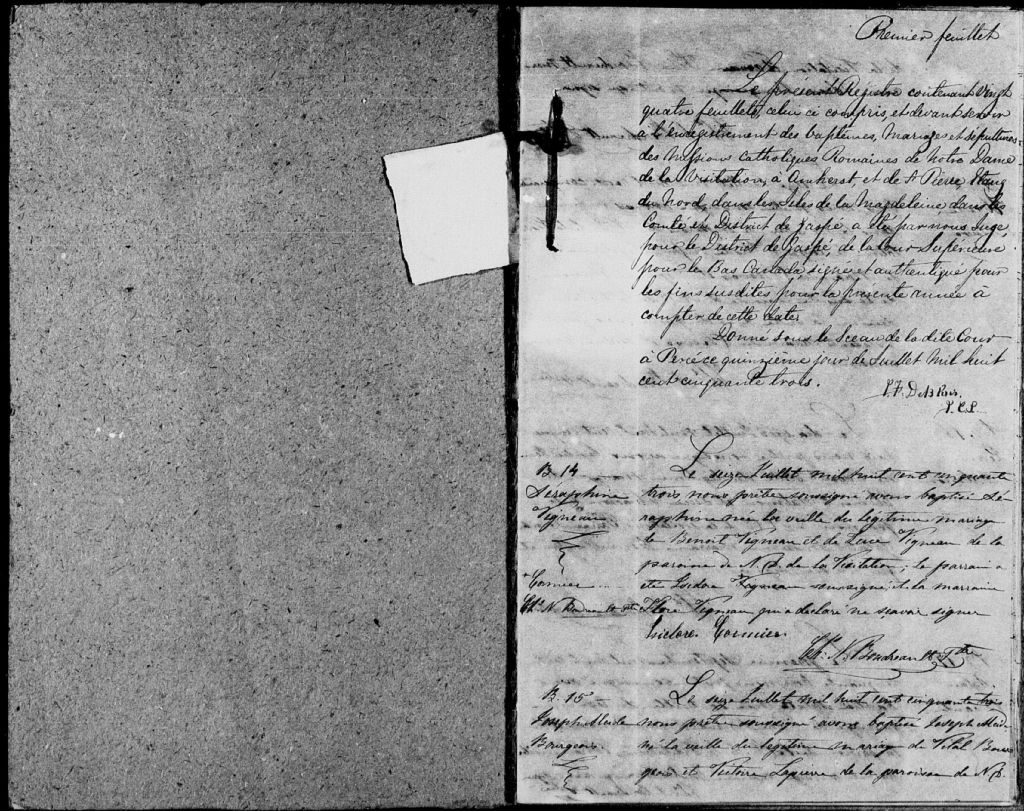 Premier feuillet
Le présent Registre contenant vingt
quatre feuillets, celui ci compris, et devant servir
à l'enregistrement des baptêmes, Mariages et sépultures
des Missions Catholiques Romaines de Notre Dame
de la Visitation, à Amherst, et de St Pierre Etang
du Nord, dans les Isles de la Magdeleine dans le
Comté et District de Gaspé, a été par nous Juge
pour le District de Gaspé, de la Cour Supérieure
pour le Bas Canada signé et authentiqué pour
les fins susdites pour la présente année à
compter de cette date.
Donné sous le Sceau de la dite Cour
à Percé ce quinzième jour de Juillet Mil huit
cent cinquante trois.
B. 14
Séraphine
Vigneau
Le seize Juillet mil huit cent cinquante
trois nous prêtre soussigné avons baptisé Sé
raphine née la veille du légitime mariage
de Benoit Vigneau et de Luce Vigneau de la
paroisse de N. D. de la Visitation; le parrain a
été Isidore soussigné et la marraine
Flore Vigneau qui a déclaré ne sçavoir signer
Isidore Cormier
Cormier
Chs. N. Boudreault Ptre
Chs. N. Boudreault Ptre
B. 15
Joseph
Bourgeois
Le seize Juillet mil huit cent cinquante trois
nous prêtre soussigné avons baptisé Joseph
né la veille du légitime mariage de Vital Bour
geois et Victoire Lapierre de la paroisse de N. D.